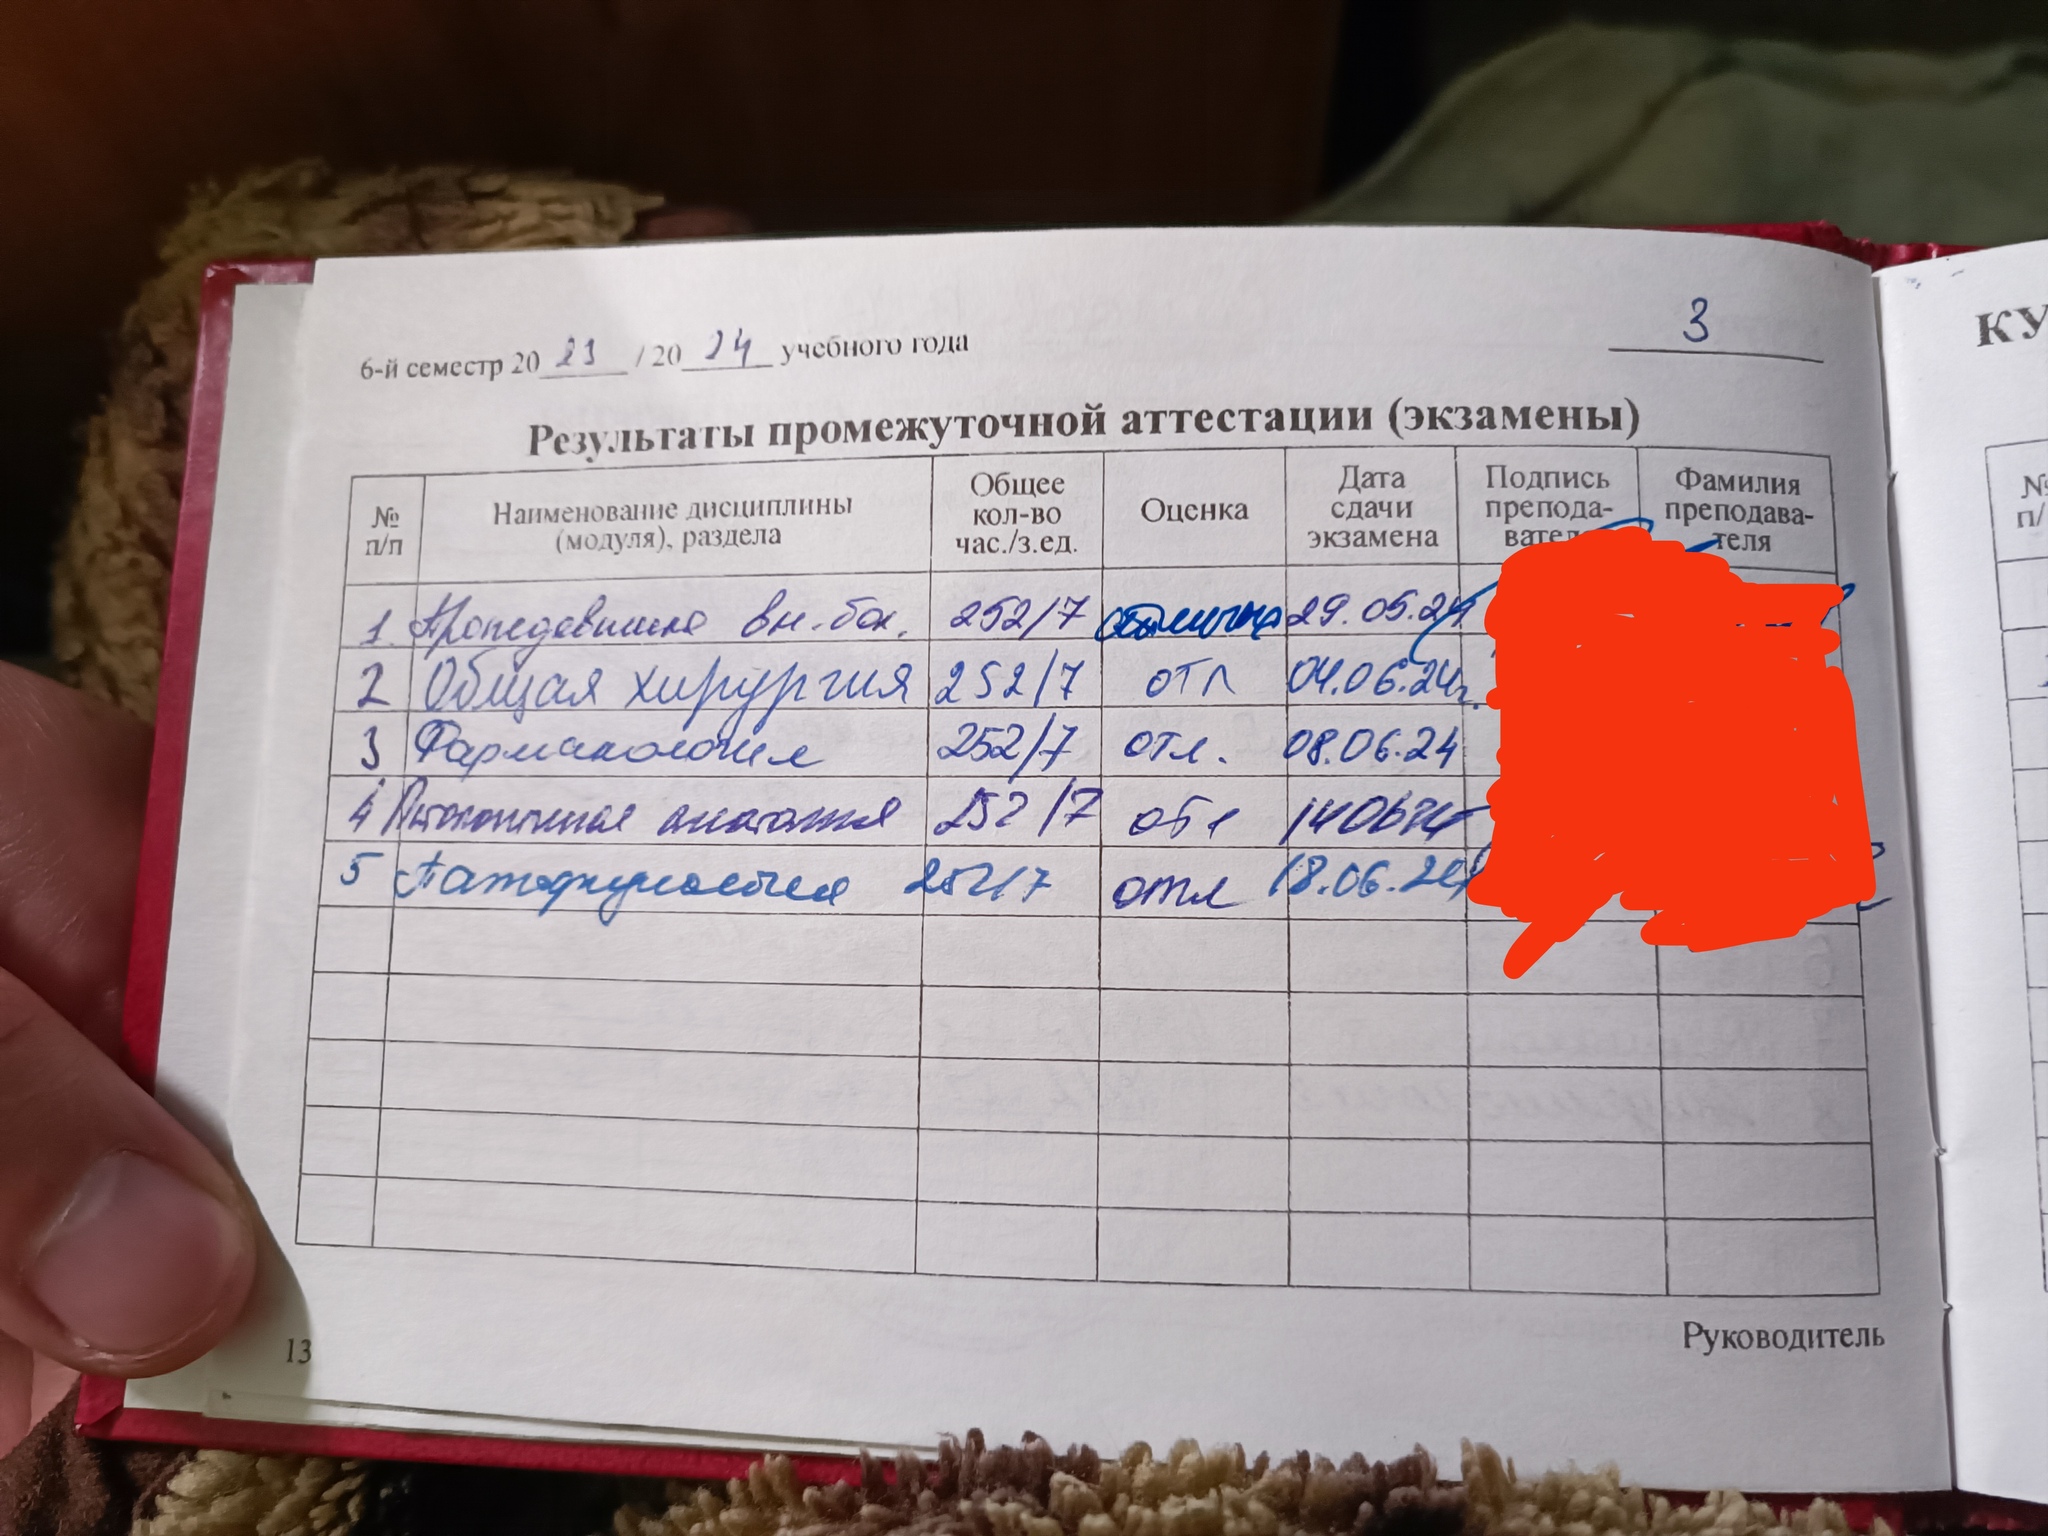 6-й семестр 20 23 / 20 24 учебного года
3
Результаты промежуточной аттестации (экзамены)
№ п/п Наименование дисциплины (модуля), раздела Общее кол-во час./з.ед. Оценка Дата сдачи экзамена Подпись препода- Фамилия преподава-теля
1. Пропедевтика вн. бол. 252/7 отлично 29.05.24
2 Общая хирургия 252/7 отл 04.06.24г.
3 Фармакология 252/7 отл. 08.06.24
4 анатомия 252/7 отл 140624
5 Патофизиология 252/7 отл 18.06.24
13
Руководитель
КУ
№
п/